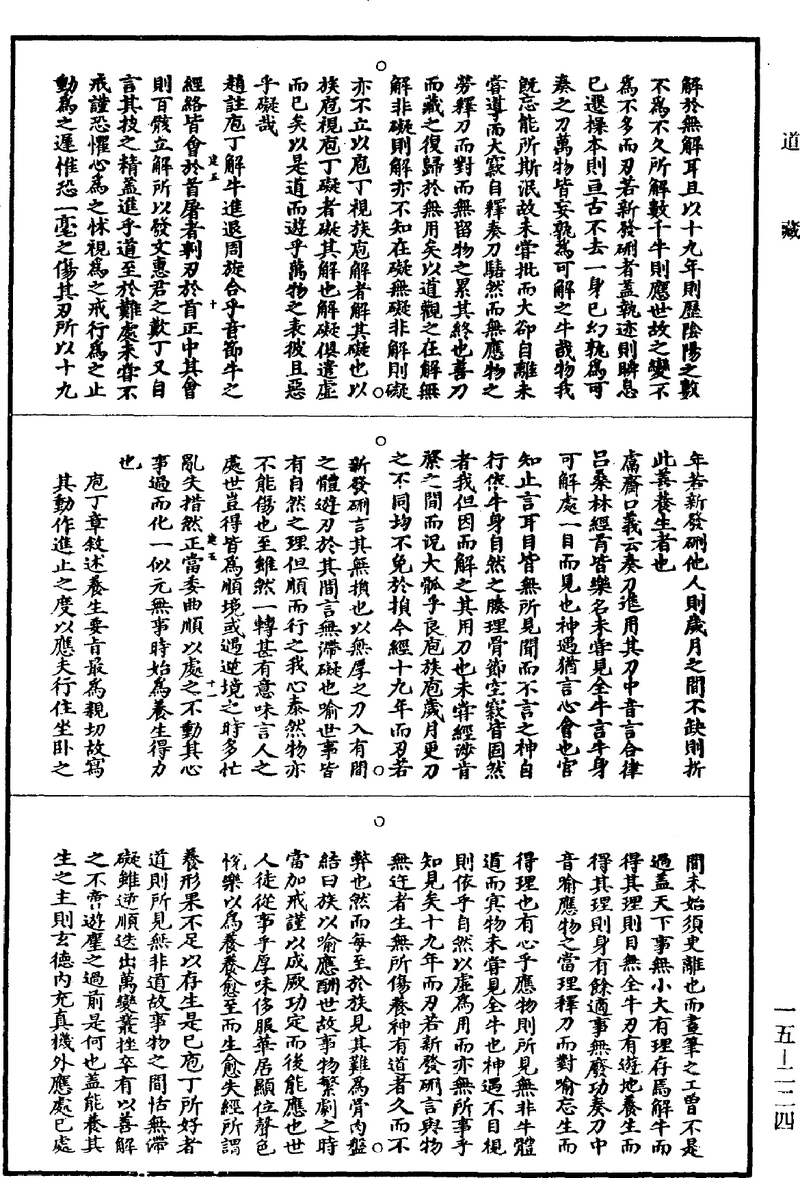 道藏
解於無解耳且以十九年則歷陰陽之數
不為不久所解數千牛則應世故之變不
為不多而刃若新發硎者蓋執迹則瞬息
已遷操本則亘古不去一身已幻孰為可
奏之刀萬物皆妄孰為可解之牛哉物我
旣忘能所斯泯故未嘗批而大卻自離未
嘗導而大窾自釋奏刀騞然而無應物之
勞釋刀而對而無留物之累其終也善刀
而藏之復歸於無用矣以道觀之在解無
解非礙則解亦不知在礙無礙非解則礙
亦不立以庖丁視族庖解者解其礙也以
族庖視庖丁礙者礙其解也解礙俱遣虛
而已矣以是道而遊乎萬物之表彼且惡
乎礙哉
趙註庖丁解牛進退周旋合乎音節牛之
經絡皆會於首屠者剚刃於首正中其會
則百骸立解所以發文惠君之歎丁又自
言其技之精蓋進乎道至於難處未嘗不
戒謹恐懼心為之怵視為之戒行為之止
動為之遲惟恐一毫之傷其刃所以十九
年若新發硎他人則歲月之間不缺則折
此善養生者也
鬳齋口義云奏刀進用其刀中音言合律
呂桑林經首皆樂名未嘗見全牛言牛身
可解處一目而見也神遇猶言心會也官
知止言耳目皆無所見聞而不言之神自
行依牛身自然之腠理骨節空竅皆固然
者我但因而解之其用刀也未嘗經涉肯
綮之間而況大軱乎良庖族庖歲月更刀
之不同均不免於損今經十九年而刃若
新發硎言其無損也以無厚之刀入有間
之體遊刃於其間言無滯礙也喻世事皆
有自然之理但順而行之我心泰然物亦
不能傷也至雖然一轉甚有意味言人之
處世豈得皆為順境或遇逆境之時多忙
亂失措然正當委曲順以處之不動其心
事過而化一似元無事時始為養生得力
也
庖丁章敘述養生要旨最為親切故寫
其動作進止之度以應夫行住坐卧之
間未始須臾離也而畫筆之工曾不是
過蓋天下事無小大有理存焉解牛而
得其理則目無全牛刃有遊地養生而
得其理則身有餘適事無廢功奏刀中
音喻應物之當理釋刀而對喻忘生而
得理也有心乎應物則所見無非牛體
道而冥物未嘗見全牛也神遇不目視
則依乎自然以虛為用而亦無所事乎
知見矣十九年而刃若新發硎言與物
無迕者生無所傷養神有道者久而不
弊也然而每至於族見其難為骨肉盤
結曰族以喻應酬世故事物繁劇之時
當加戒謹以成厥功定而後能應也世
人徒從事乎厚味侈服華居顯位聲色
悅樂以為養養愈至而生愈失經所謂
養形果不足以存生是已庖丁所好者
道則所見無非道故事物之間恬無滯
礙雖逆順迭出萬變叢挫卒有以善解
之不啻遊塵之過前是何也蓋能養其
生之主則玄德內充真機外應處已處
一五－二二四